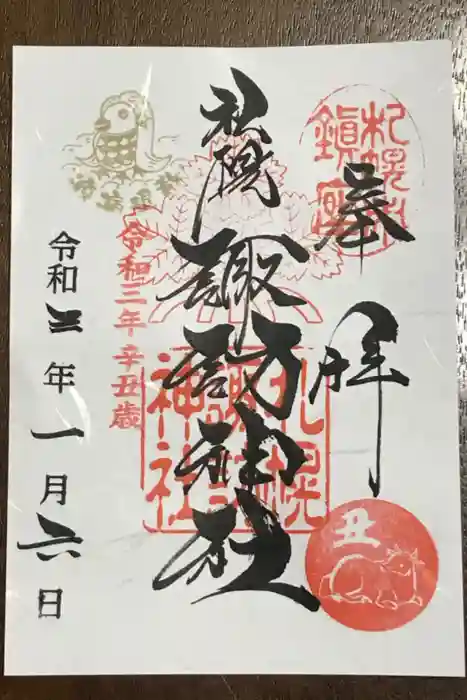 奉拝
札幌
鎮
札幌諏訪神社
札幌
諏訪
神社
令和三年辛丑歳
令和三年一月六日
丑